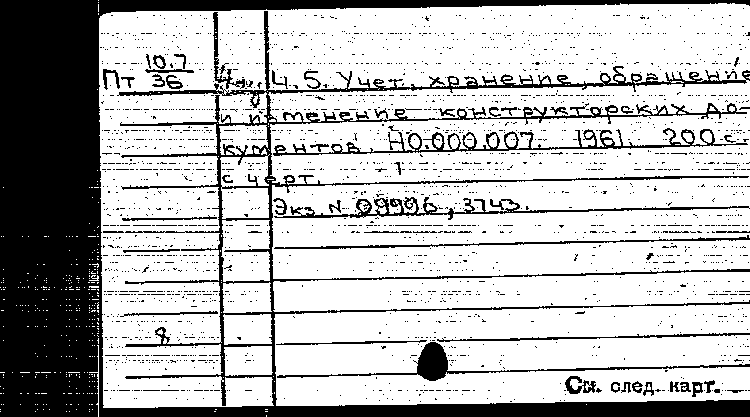 Пт 10.7/36 Ч. 4.5. Учет, хранение, обращение
и изменение конструкторских до-
кументов. НО.000.007. 1961. 200 с.
с черт.
Экз. N 09996, 3743.
8
См. след. карт.